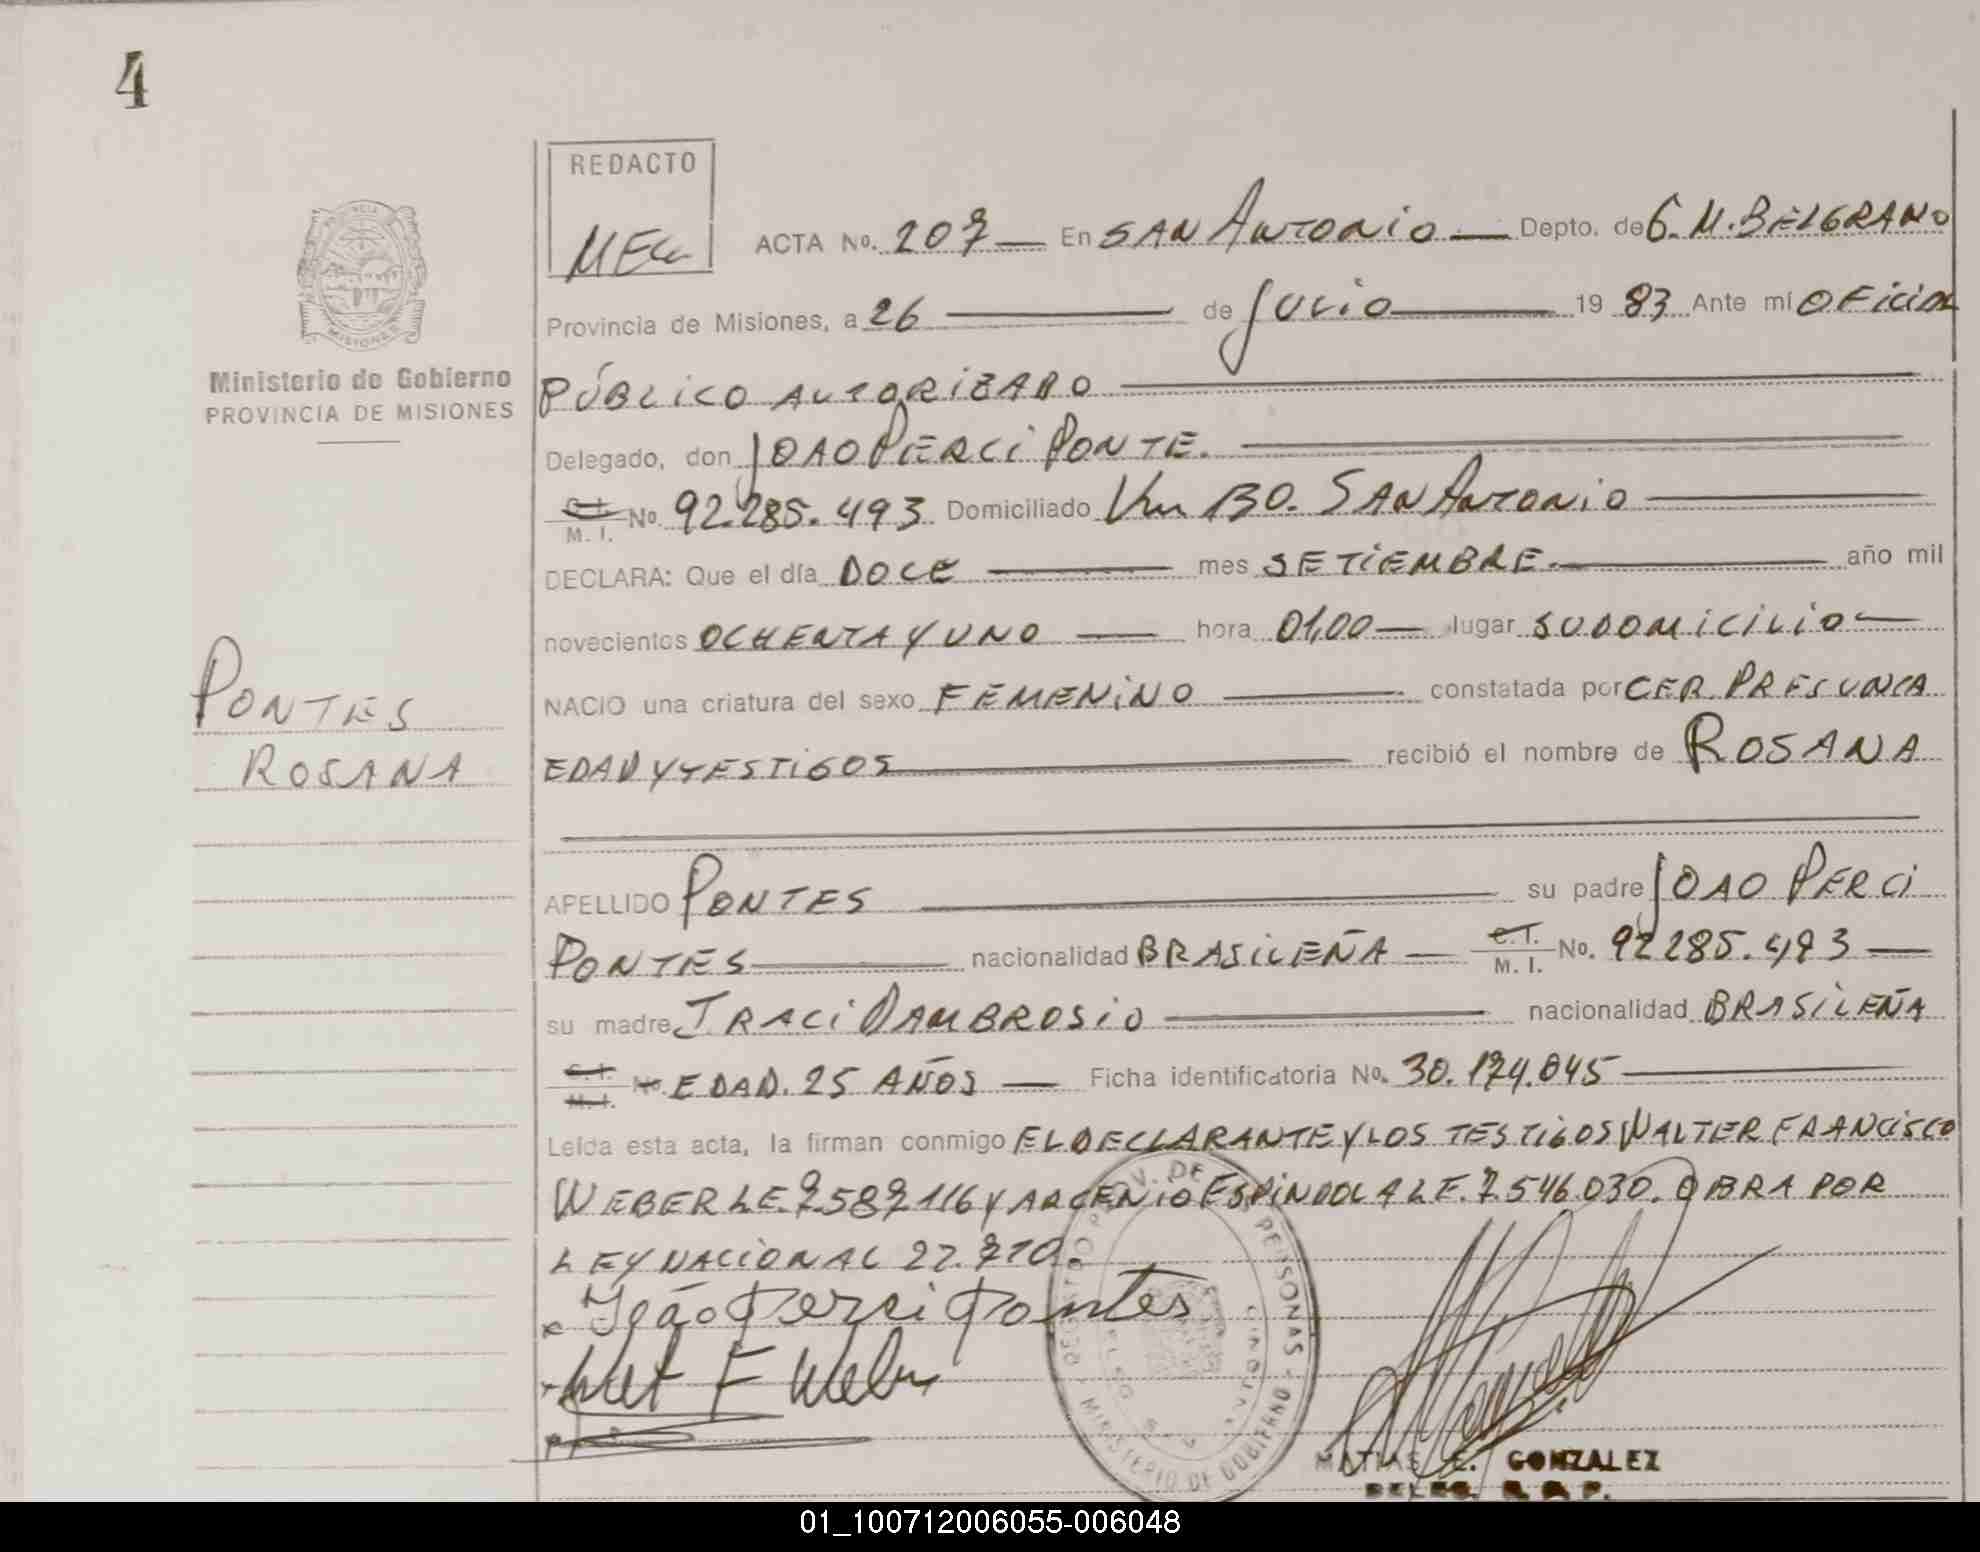 4
REDACTO
MEG
ACTA No. 207 En SAN ANTONIO Depto. de G. M. BELGRANO
Provincia de Misiones, a 26 de JULIO 19 83 Ante mí OFICIAL
PROVINCIA
MISIONES
Ministerio de Gobierno
PROVINCIA DE MISIONES
PÚBLICO AUTORIZADO
Delegado, don JOAO PIERCI PONTE.
C. I. M. I. No 92.285.493 Domiciliado Km 130. SAN ANTONIO
DECLARA: Que el día DOCE mes SETIEMBRE. año mil
novecientos OCHENTA Y UNO hora 01,00 lugar SU DOMICILIO
PONTES
ROSANA
NACIO una criatura del sexo FEMENINO constatada por CER. PRESUNTA
EDAD Y TESTIGOS recibió el nombre de ROSANA
APELLIDO PONTES su padre JOAO PERCI
PONTES nacionalidad BRASILEÑA C. I. M. I. No. 92285.493
su madre IRACI DAMBROSIO nacionalidad BRASILEÑA
C. I. M. I. No. EDAD. 25 AÑOS Ficha identificatoria No. 30.174.045
Leída esta acta, la firman conmigo EL DECLARANTE Y LOS TESTIGOS WALTER FRANCISCO
WEBER LE. 7.587116 Y ARCENIO ESPINDOLA LE. 7.546.030. OBRA POR
LEY NACIONAL 22.710.
x João Perci Pontes
Walt F Weber
MINISTERIO DE GOBIERNO
PERSONAS
MATIAS E. GONZALEZ
DELEG. R. D. P.
01_100712006055-006048